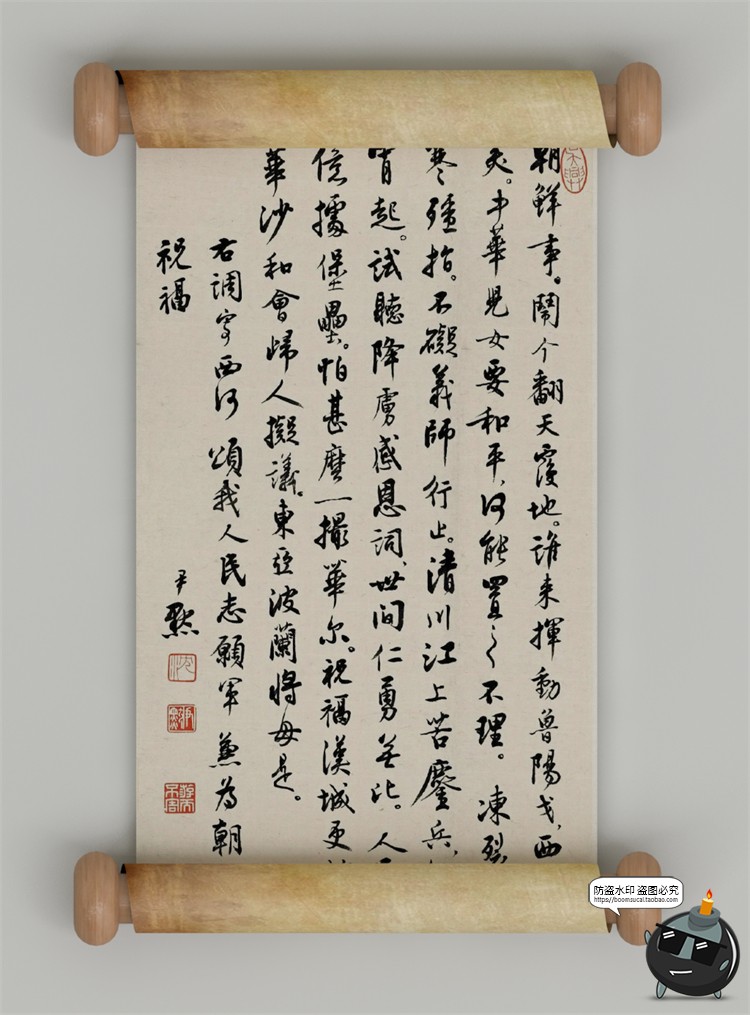 朝鮮事。鬧个翻天覆地。誰来揮動魯陽戈，西
。中華児女要和平，何能置之不理。凍裂
寒殭指。不礙義師行止。清川江上苦鏖兵，
宵起。試聽降虜感恩詞，世间仁勇無比。人
億據堡壘。怕甚麽一撮華尔。祝福漢城更
華沙和會歸人擬議。東亞波蘭將毋是。
右調寄西河 頌我人民志願軍 兼為朝
祝福
尹默
沈
防盗水印 盗图必究
https://boomsucai.taobao.com